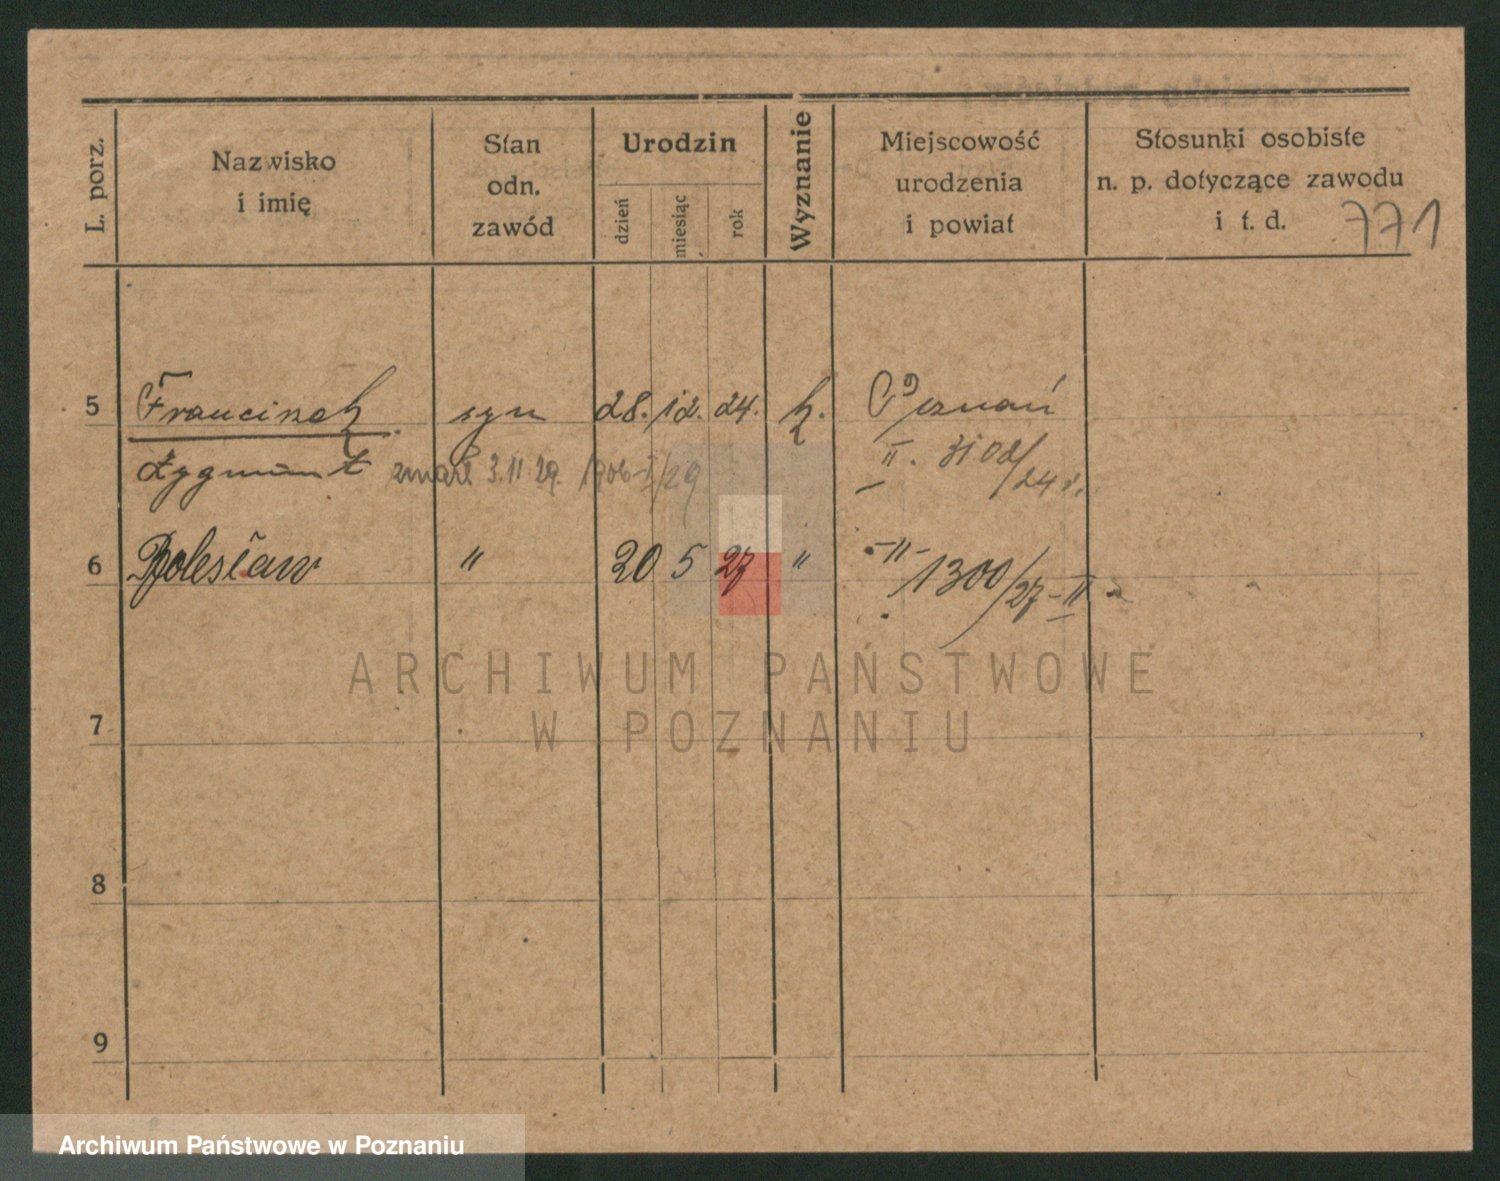 L. porz.
Nazwisko
i imię
Stan
odn.
zawód
Urodzin
dzień
miesiąc
rok
Wyznanie
Miejscowość
urodzenia
i powiat
Stosunki osobiste
n. p. dotyczące zawodu
i t. d.
771
5 Franciszek syn 28. 12. 24. k. Poznań
Zygmunt zmarł 3.11 29. 1906-I/29 II. 3102/24 r.
6 Bolesław " 20 5 27 " -"- 1300/27-II
ARCHIWUM PAŃSTWOWE
W POZNANIU
7
8
9
Archiwum Państwowe w Poznaniu